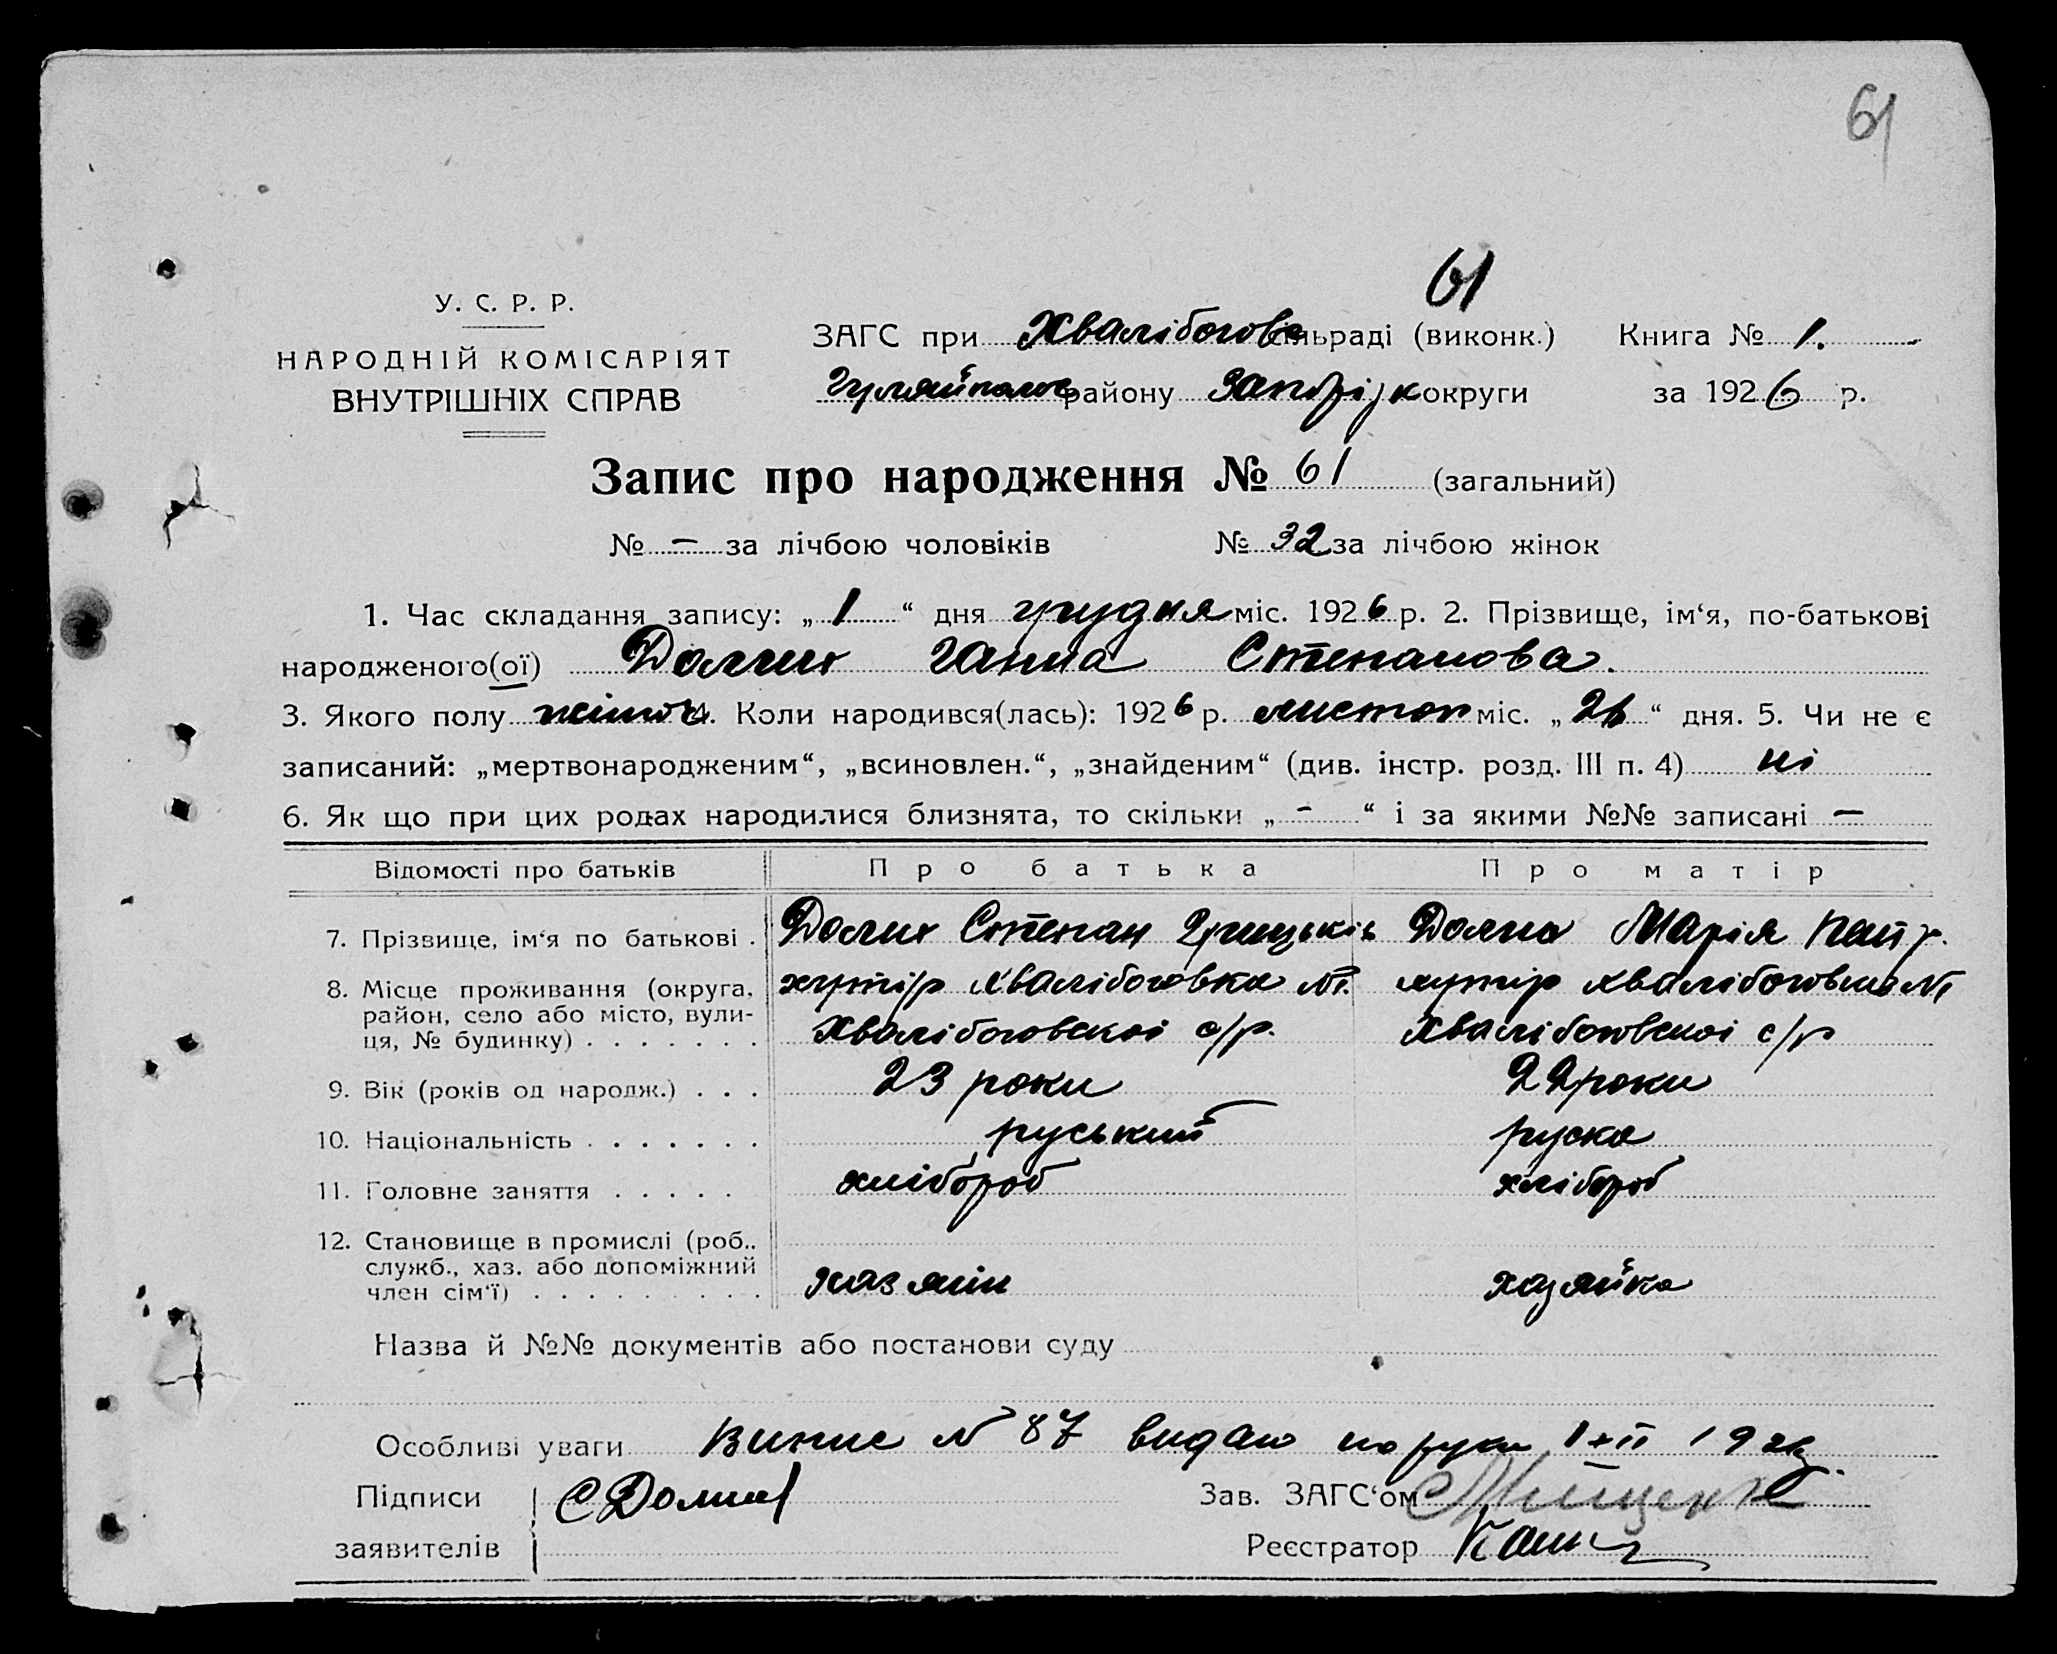 61
61
У. С. Р. Р.
НАРОДНІЙ КОМІСАРІЯТ
ВНУТРІШНІХ СПРАВ
ЗАГС при Хвалібогове сільраді (виконк.) Книга № 1.
Гуляйполе району Запоріж округи за 1926 р.
Запис про народження № 61 (загальний)
№ – за лічбою чоловіків № 32 за лічбою жінок
1. Час складання запису: „ 1 “ дня грудня міс. 1926 р. 2. Прізвище, ім‘я, по-батькові
народженого(ої) Ганна Степанова.
3. Якого полу 4. Коли народився(лась): 1926 р. листоп міс. „ 26 “ дня. 5. Чи не є
записаний: „мертвонародженим“, „всиновлен.“, „знайденим“ (див. інстр. розд. III п. 4) ні
6. Як що при цих родах народилися близнята, то скільки „ - “ і за якими №№ записані —
Відомості про батьків Про батька Про матір
7. Прізвище, ім‘я по батькові . Степан Грицьків Марія
8. Місце проживання (округа, район, село або місто, вулиця, № будинку) хутір Хвалібоговка №1. хутір Хвалібоговка №1
Хвалібоговскої с/р. Хвалібоговскої с/р
9. Вік (років од народж.) . . . 23 роки 22 роки
10. Національність . . . . . . . руський руска
11. Головне заняття . . . . . хлібороб хлібороб
12. Становище в промислі (роб., служб., хаз. або допоміжний член сім‘ї) . . . . . . . . . хазяїн хазяйка
Назва й №№ документів або постанови суду
Особливі уваги Випис № 87 видано на руки
Підписи Зав. ЗАГС‘ом
заявителів Реєстратор